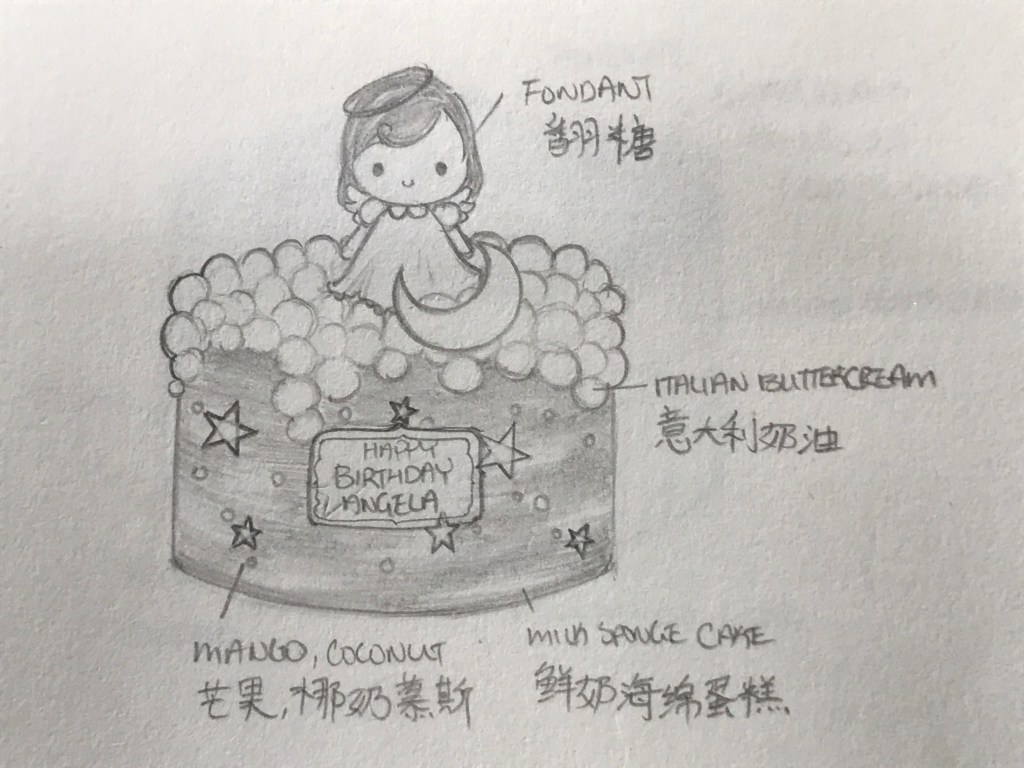 FONDANT
翻糖
ITALIAN BUTTERCREAM
意大利奶油
HAPPY
BIRTHDAY
ANGELA
MANGO, COCONUT
芒果,椰奶慕斯
MILK SPONGE CAKE
鲜奶海绵蛋糕